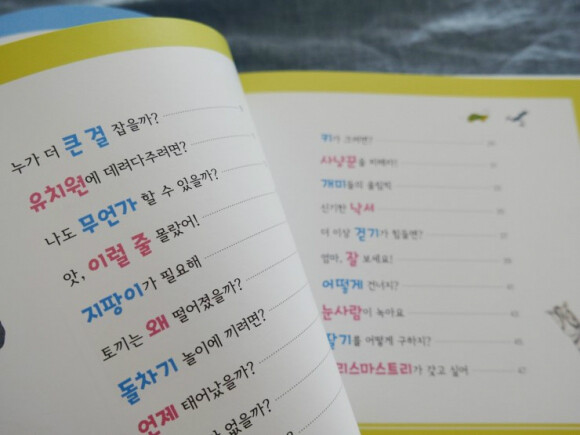 누가 더 큰 걸 잡을까?
유치원에 데려다주려면?
나도 무언가 할 수 있을까?
앗, 이럴 줄 몰랐어!
지팡이가 필요해
토끼는 왜 떨어졌을까?
돌차기 놀이에 끼려면?
언제 태어났을까?
없을까?
키가 크려면?
사냥꾼을 피해라!
개미들의 올림픽
신기한 낙서
더 이상 걷기가 힘들면?
엄마, 잘 보세요!
어떻게 건너지?
눈사람이 녹아요 43
딸기를 어떻게 구하지? 45
리스마스트리가 갖고 싶어 47